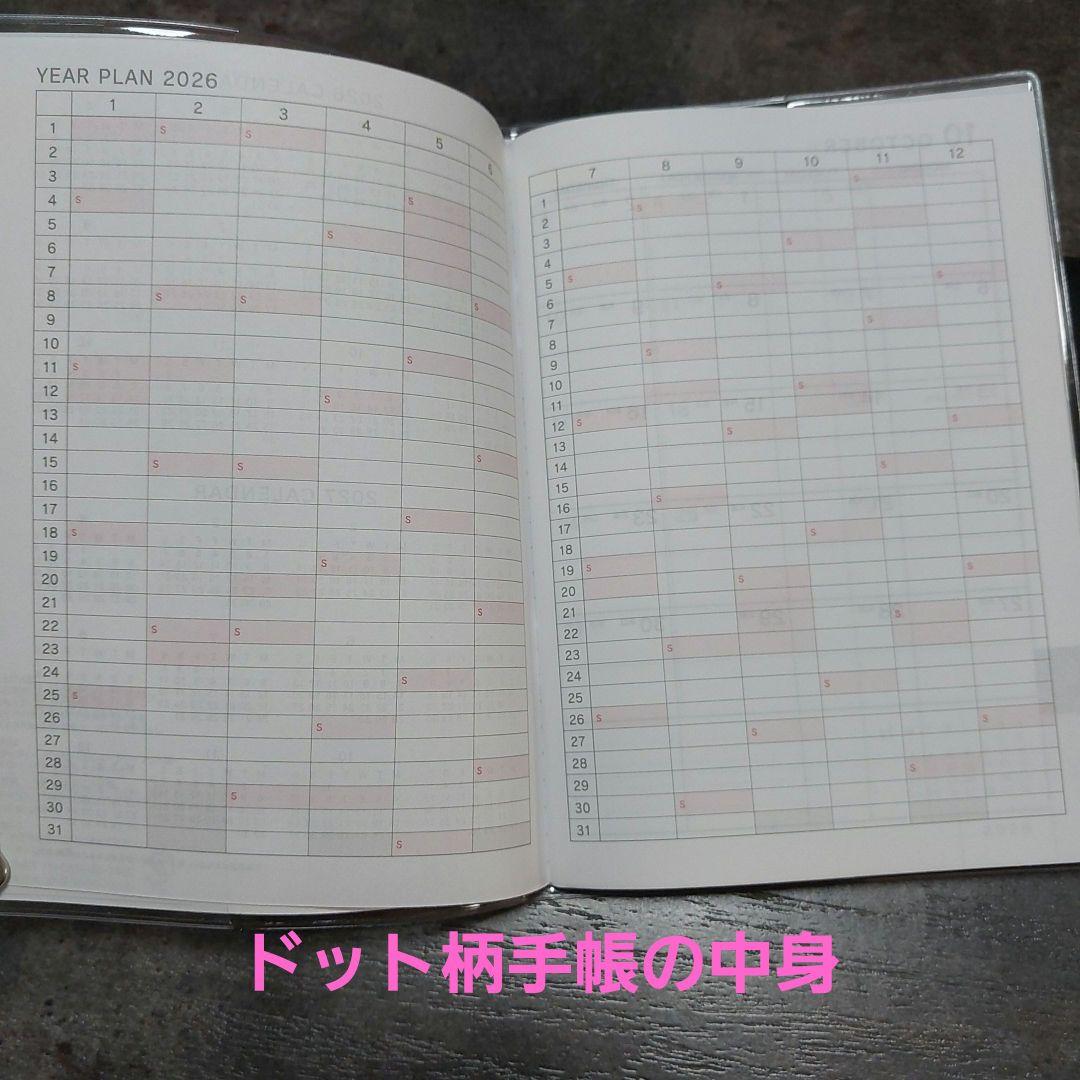 YEAR PLAN 2026
1 2 3 4 5 6
1 S S
2
3
4 S S
5 S
6
7
8 S S S
9
10
11 S S
12 S
13
14
15 S S S
16
17 S
18 S
19 S
20
21 S
22 S S
23
24 S
25 S
26 S
27
28 S
29 S
30
31 S
7 8 9 10 11 12
1 S S
2
3 S
4
5 S S S
6
7
8 S S
9
10
11 S
12 S S
13 S
14
15 S
16 S
17
18 S
19 S S
20 S
21
22 S
23 S
24
25 S
26 S
27 S S
28
29 S
30 S
31
10 OCTOBER
2026 CALENDAR
2027 CALENDAR
ドット柄手帳の中身